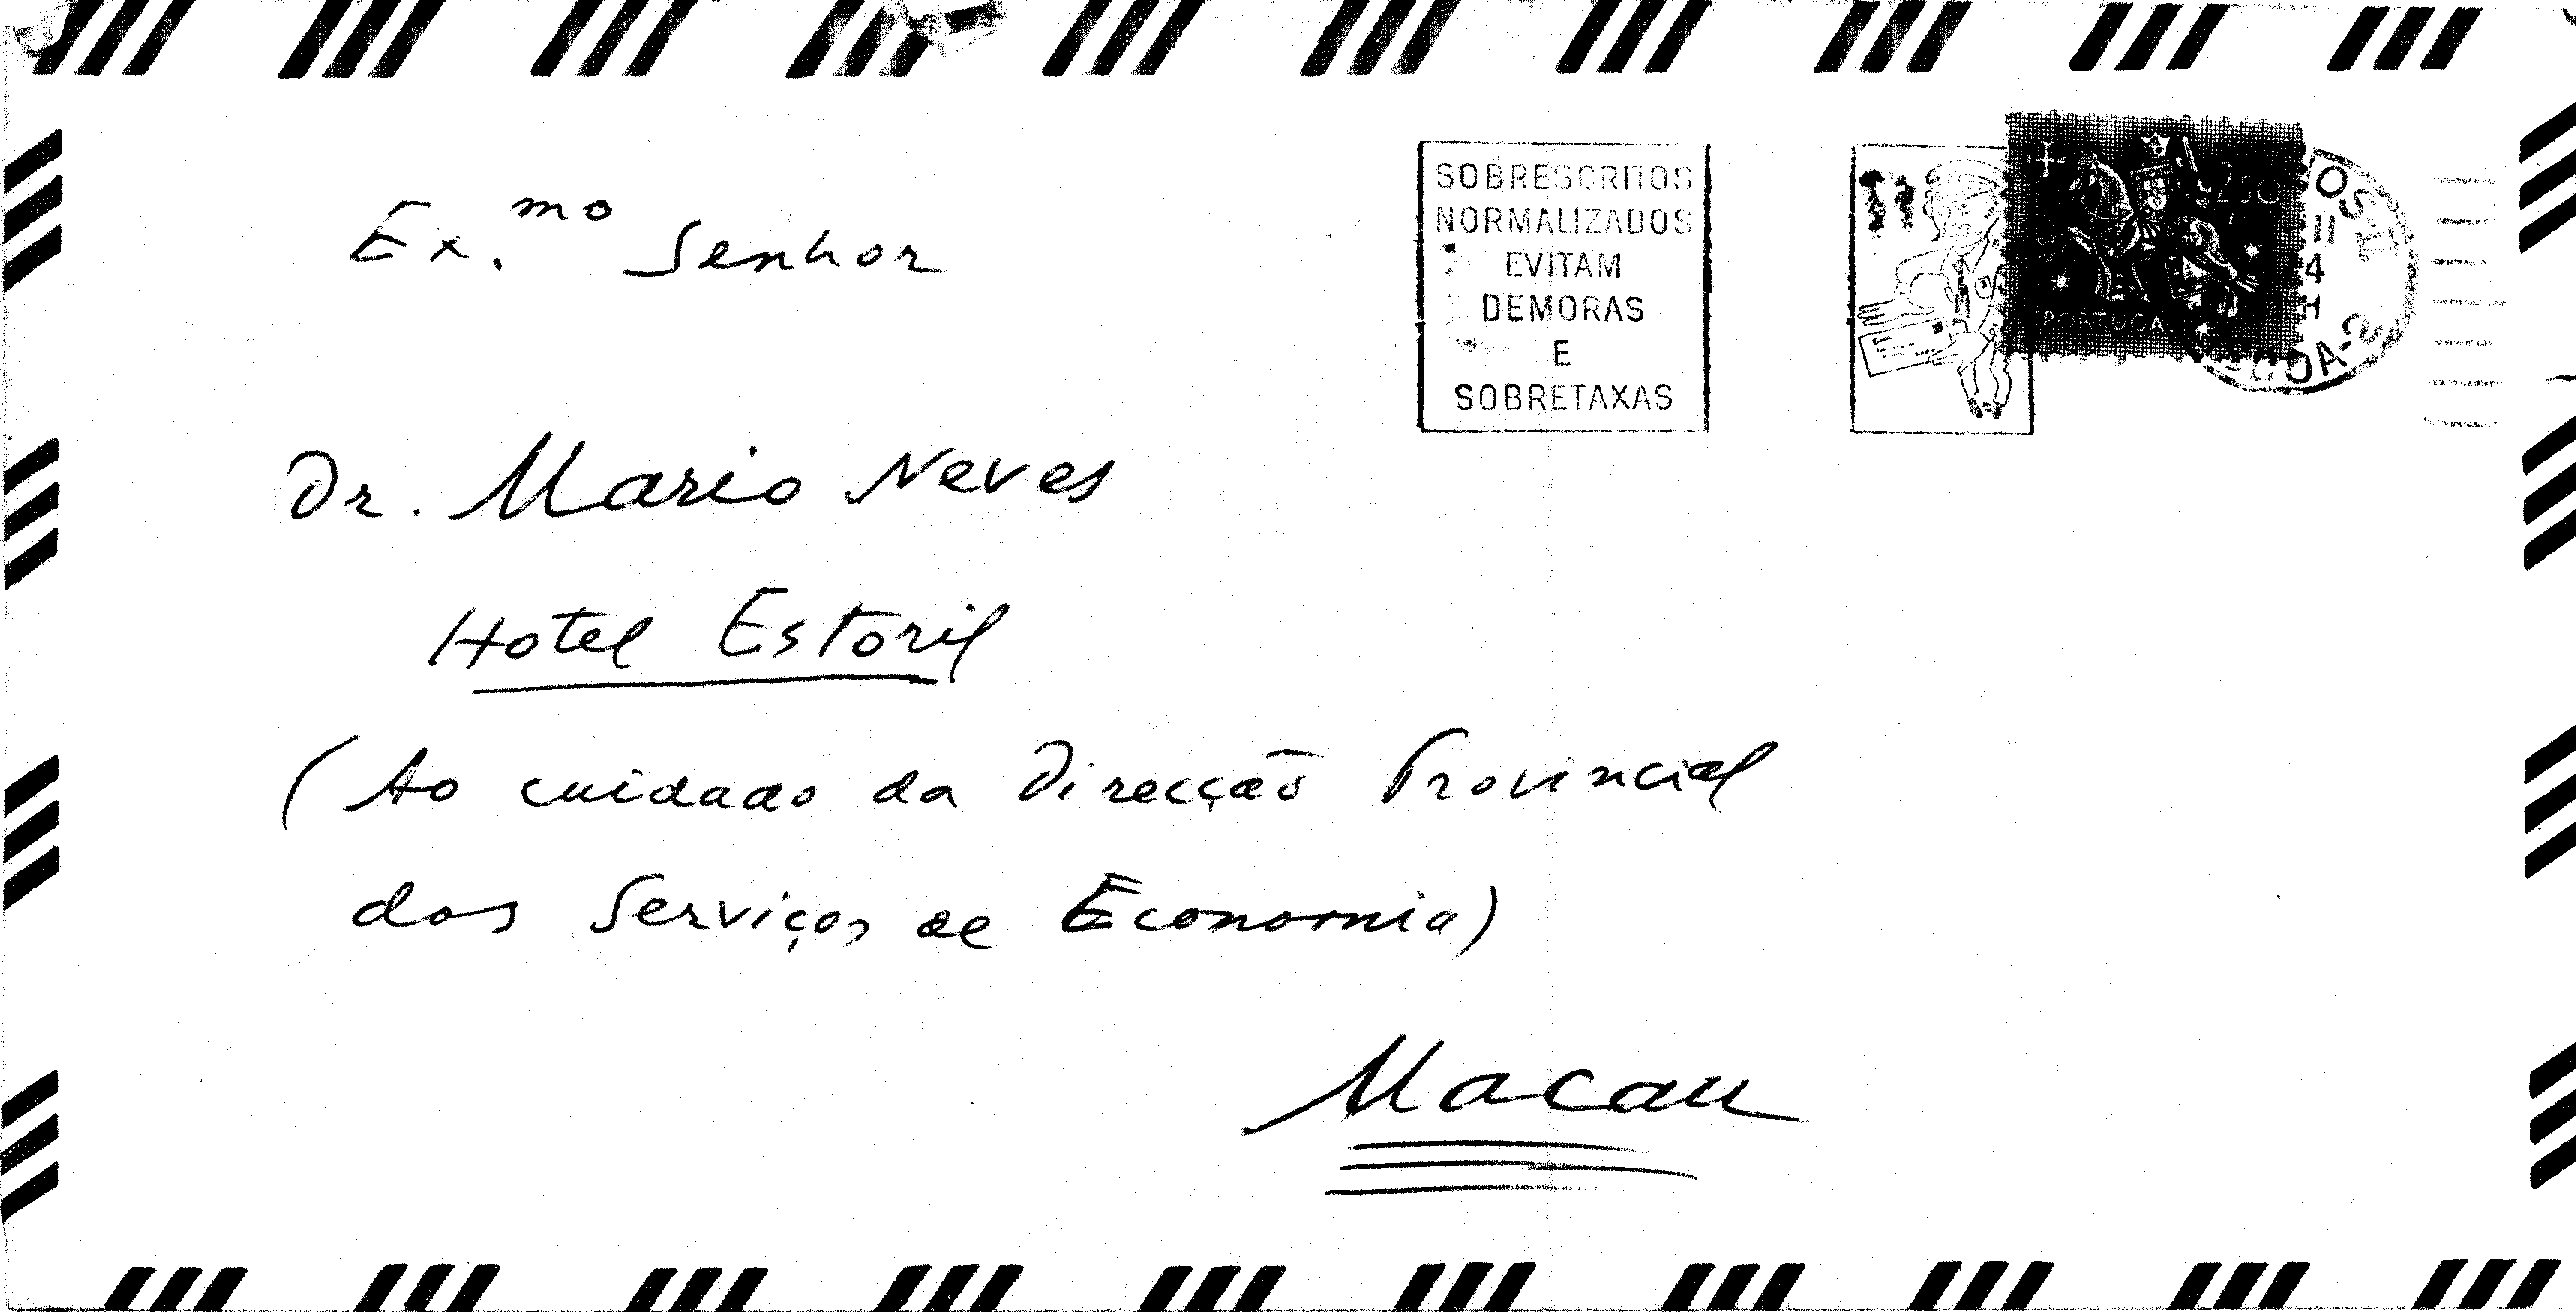 SOBRESCRITOS
NORMALIZADOS
EVITAM
DEMORAS
E
SOBRETAXAS
Ex.mo Senhor
Dr. Mario Neves
Hotel Estoril
(Ao cuidado da Direcção Provincial
dos Serviços de Economia)
Macau